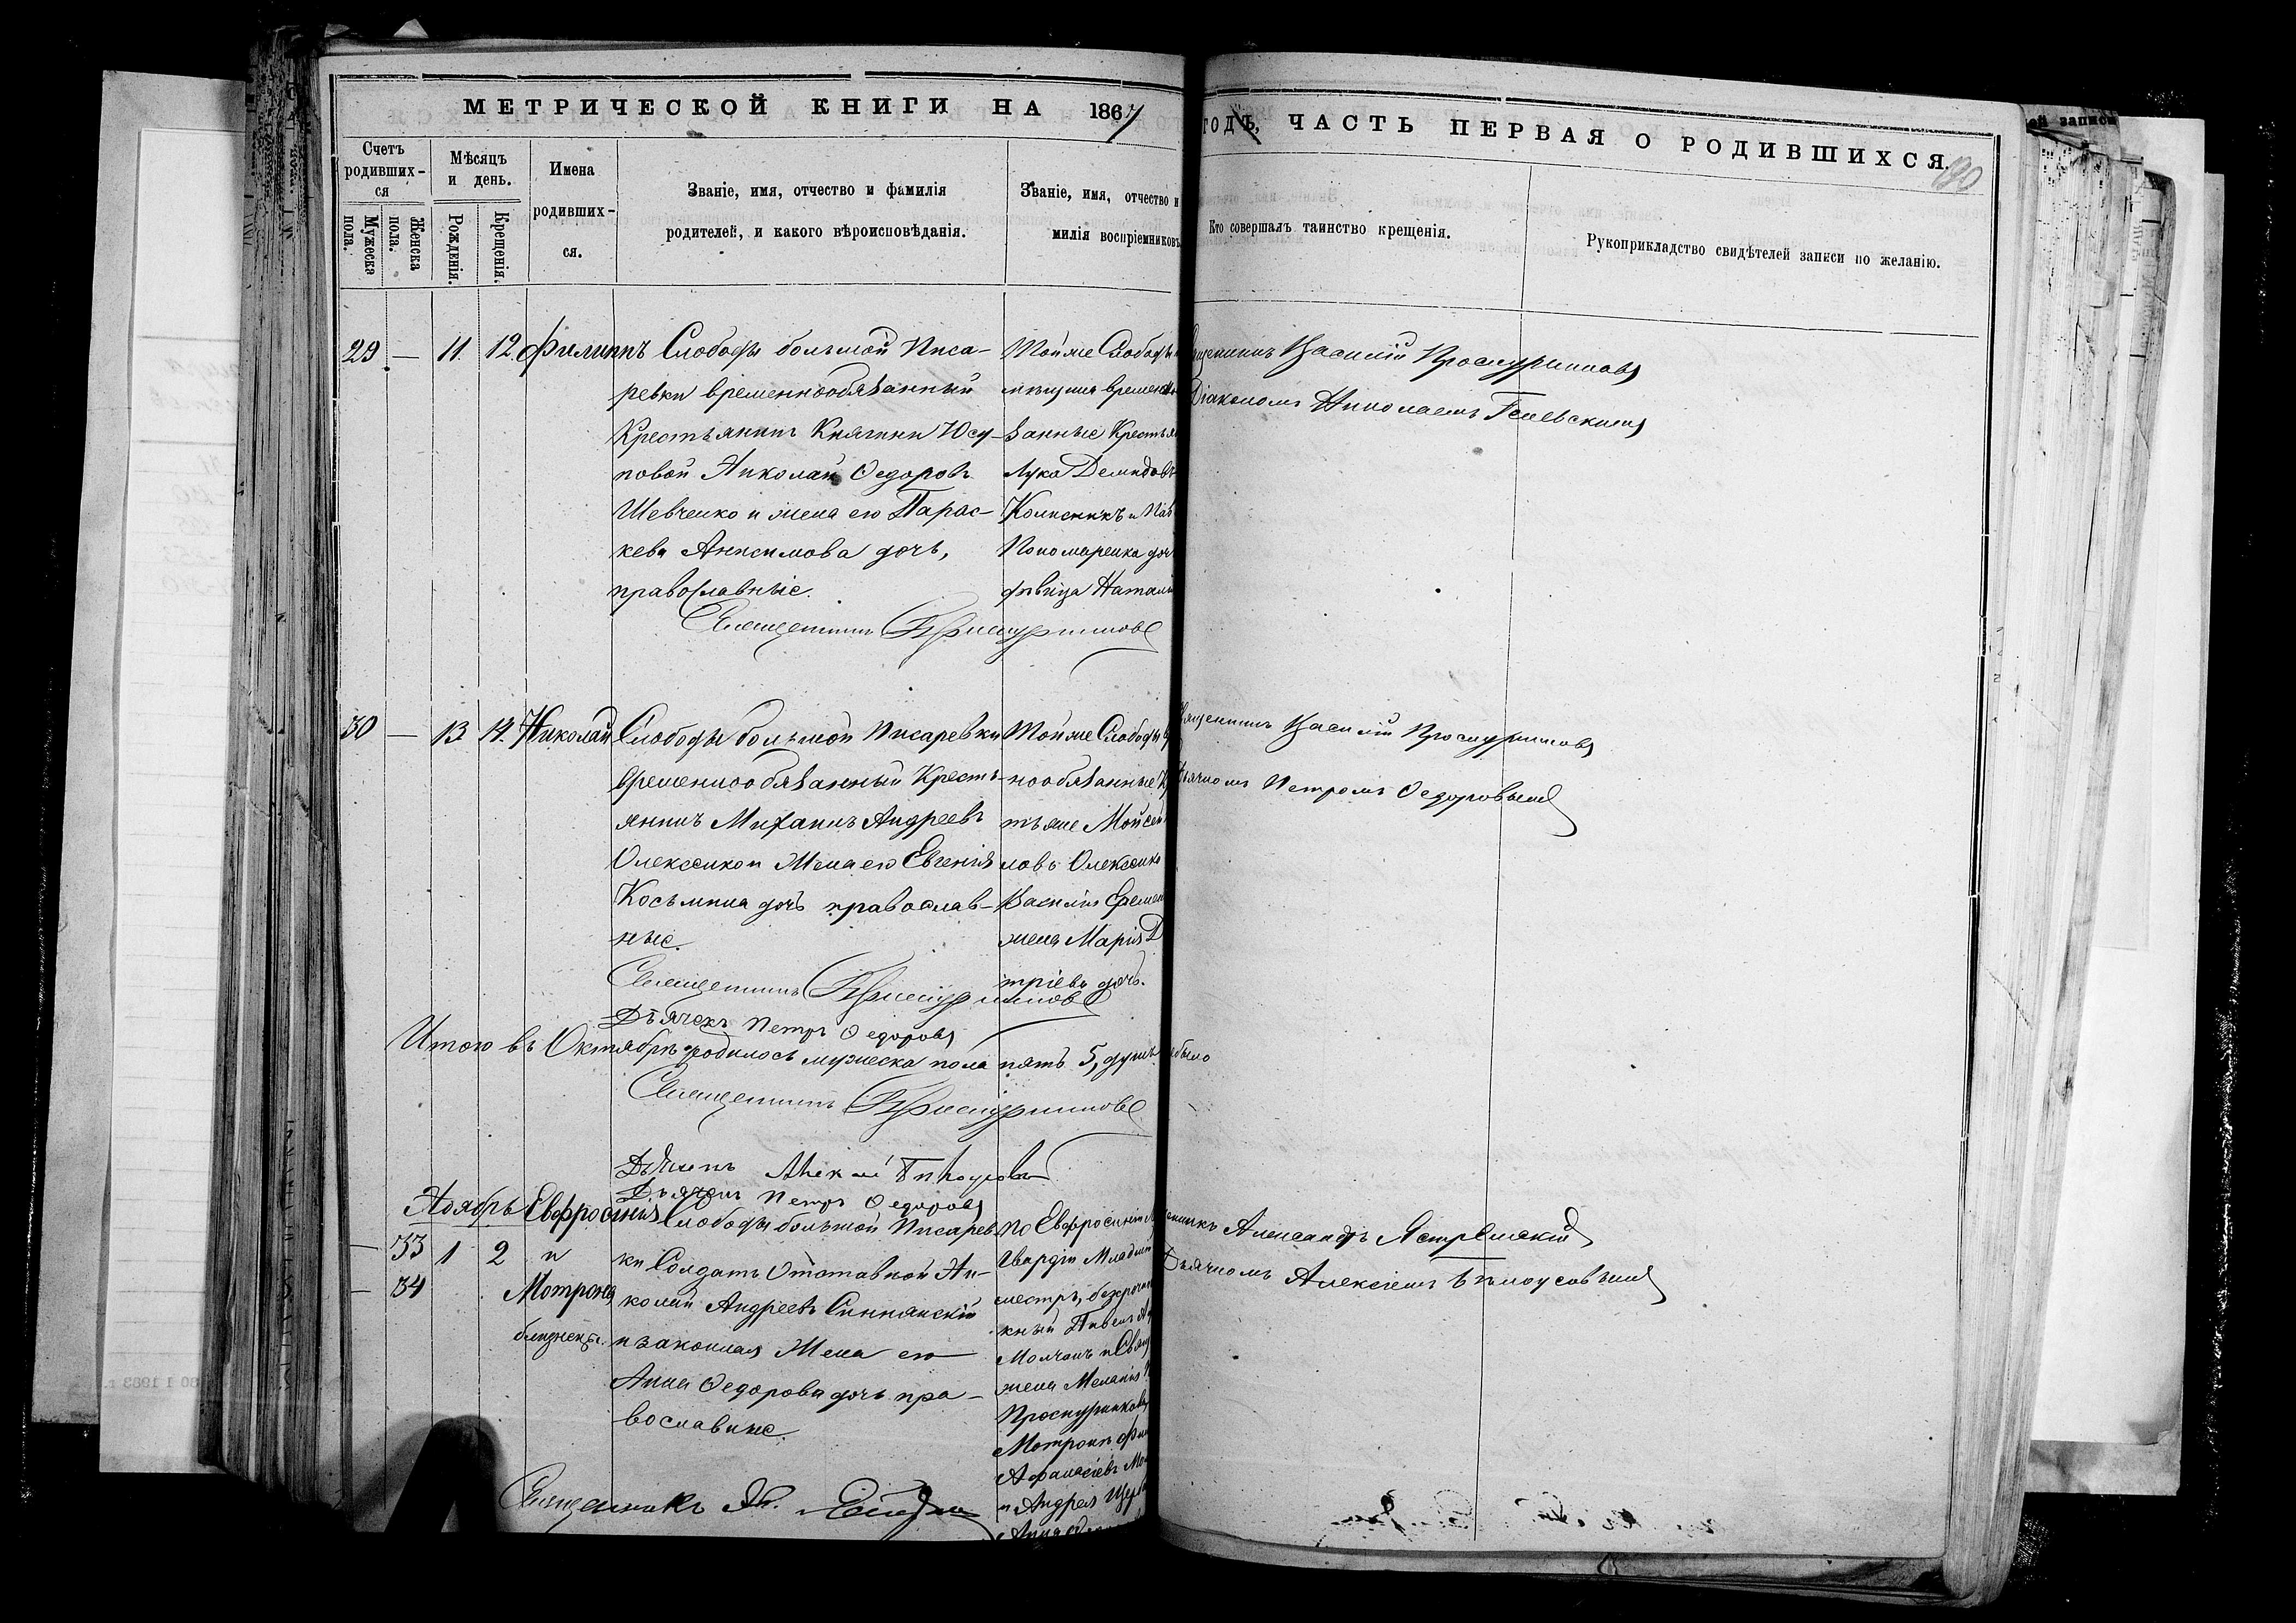 МЕТРИЧЕСКОЙ КНИГИ НА 1867
ГОДЪ, ЧАСТЬ ПЕРВАЯ О РОДИВШИХСЯ.
190
Счетъ родивших-ся
Мужеска пола.
Женска пола.
Мѣсяцъ и день.
Рожденія.
Крещенія.
Имена родивших-ся.
Званіе, имя, отчество и фамилія
родителей, и какого вѣроисповѣданія.
Званіе, имя, отчество и
милія воспріемниковъ
Кто совершалъ таинство крещенія.
Рукоприкладство свидѣтелей записи по желанію.
29 — 11. 12. Филиппъ
Слободы большой Писа-
ревки временнообязанный
Крестьянинъ Княгини Юсу-
повой Николай Ѳедоровъ
Шевченко и жена его Парас-
кева Анисимова дочь,
православные.
Священникъ Проскурниковъ
Той же Слободы
временно
занные Крестья
Лука Демидовъ
Колисникъ и Пав
Пономаренка доч
дѣвица Наталі
Василій Проскурниковъ
Діакономъ Николаемъ
30 — 13. 14. Николай
Слободы большой Писаревки
временнообязанный Кресть-
янинъ Михаилъ Андреевъ
Олексенко и Жена его Евгенія
Косьмина дочь православ-
ные.
Священникъ Проскурниковъ
Дьячекъ Петръ Ѳедоровъ
Той же Слободы
нообязанные К
тьяне Мойсей
ловъ Олексенко
Василія Еремен
жена Марія Д
тріева дочь.
Василій Проскурниковъ
Петромъ Ѳедоровымъ
Итого въ Октябрѣ родилось мужеска пола пять 5, душъ
было
Священникъ Проскурниковъ
Дьячекъ Петръ Ѳедоровъ
Ноябрь
— 33 1 2 Евфросинія
и
— 34 Мотрона
близнецы.
Слободы большой Писарев-
ки Солдатъ Отставной Ни-
колай Андреевъ
и законная Жена его
Анна Ѳедорова дочь пра-
вославные.
Священникъ
по Евфросиніи
Гвардіи Младшій
Молчанъ и Свящ
жена Меланія
Проскурникова
Мотроны
Афанасіевъ
и Андрея
Александръ Ястремскій
Дьячкомъ Алексіемъ Бѣлоусовымъ